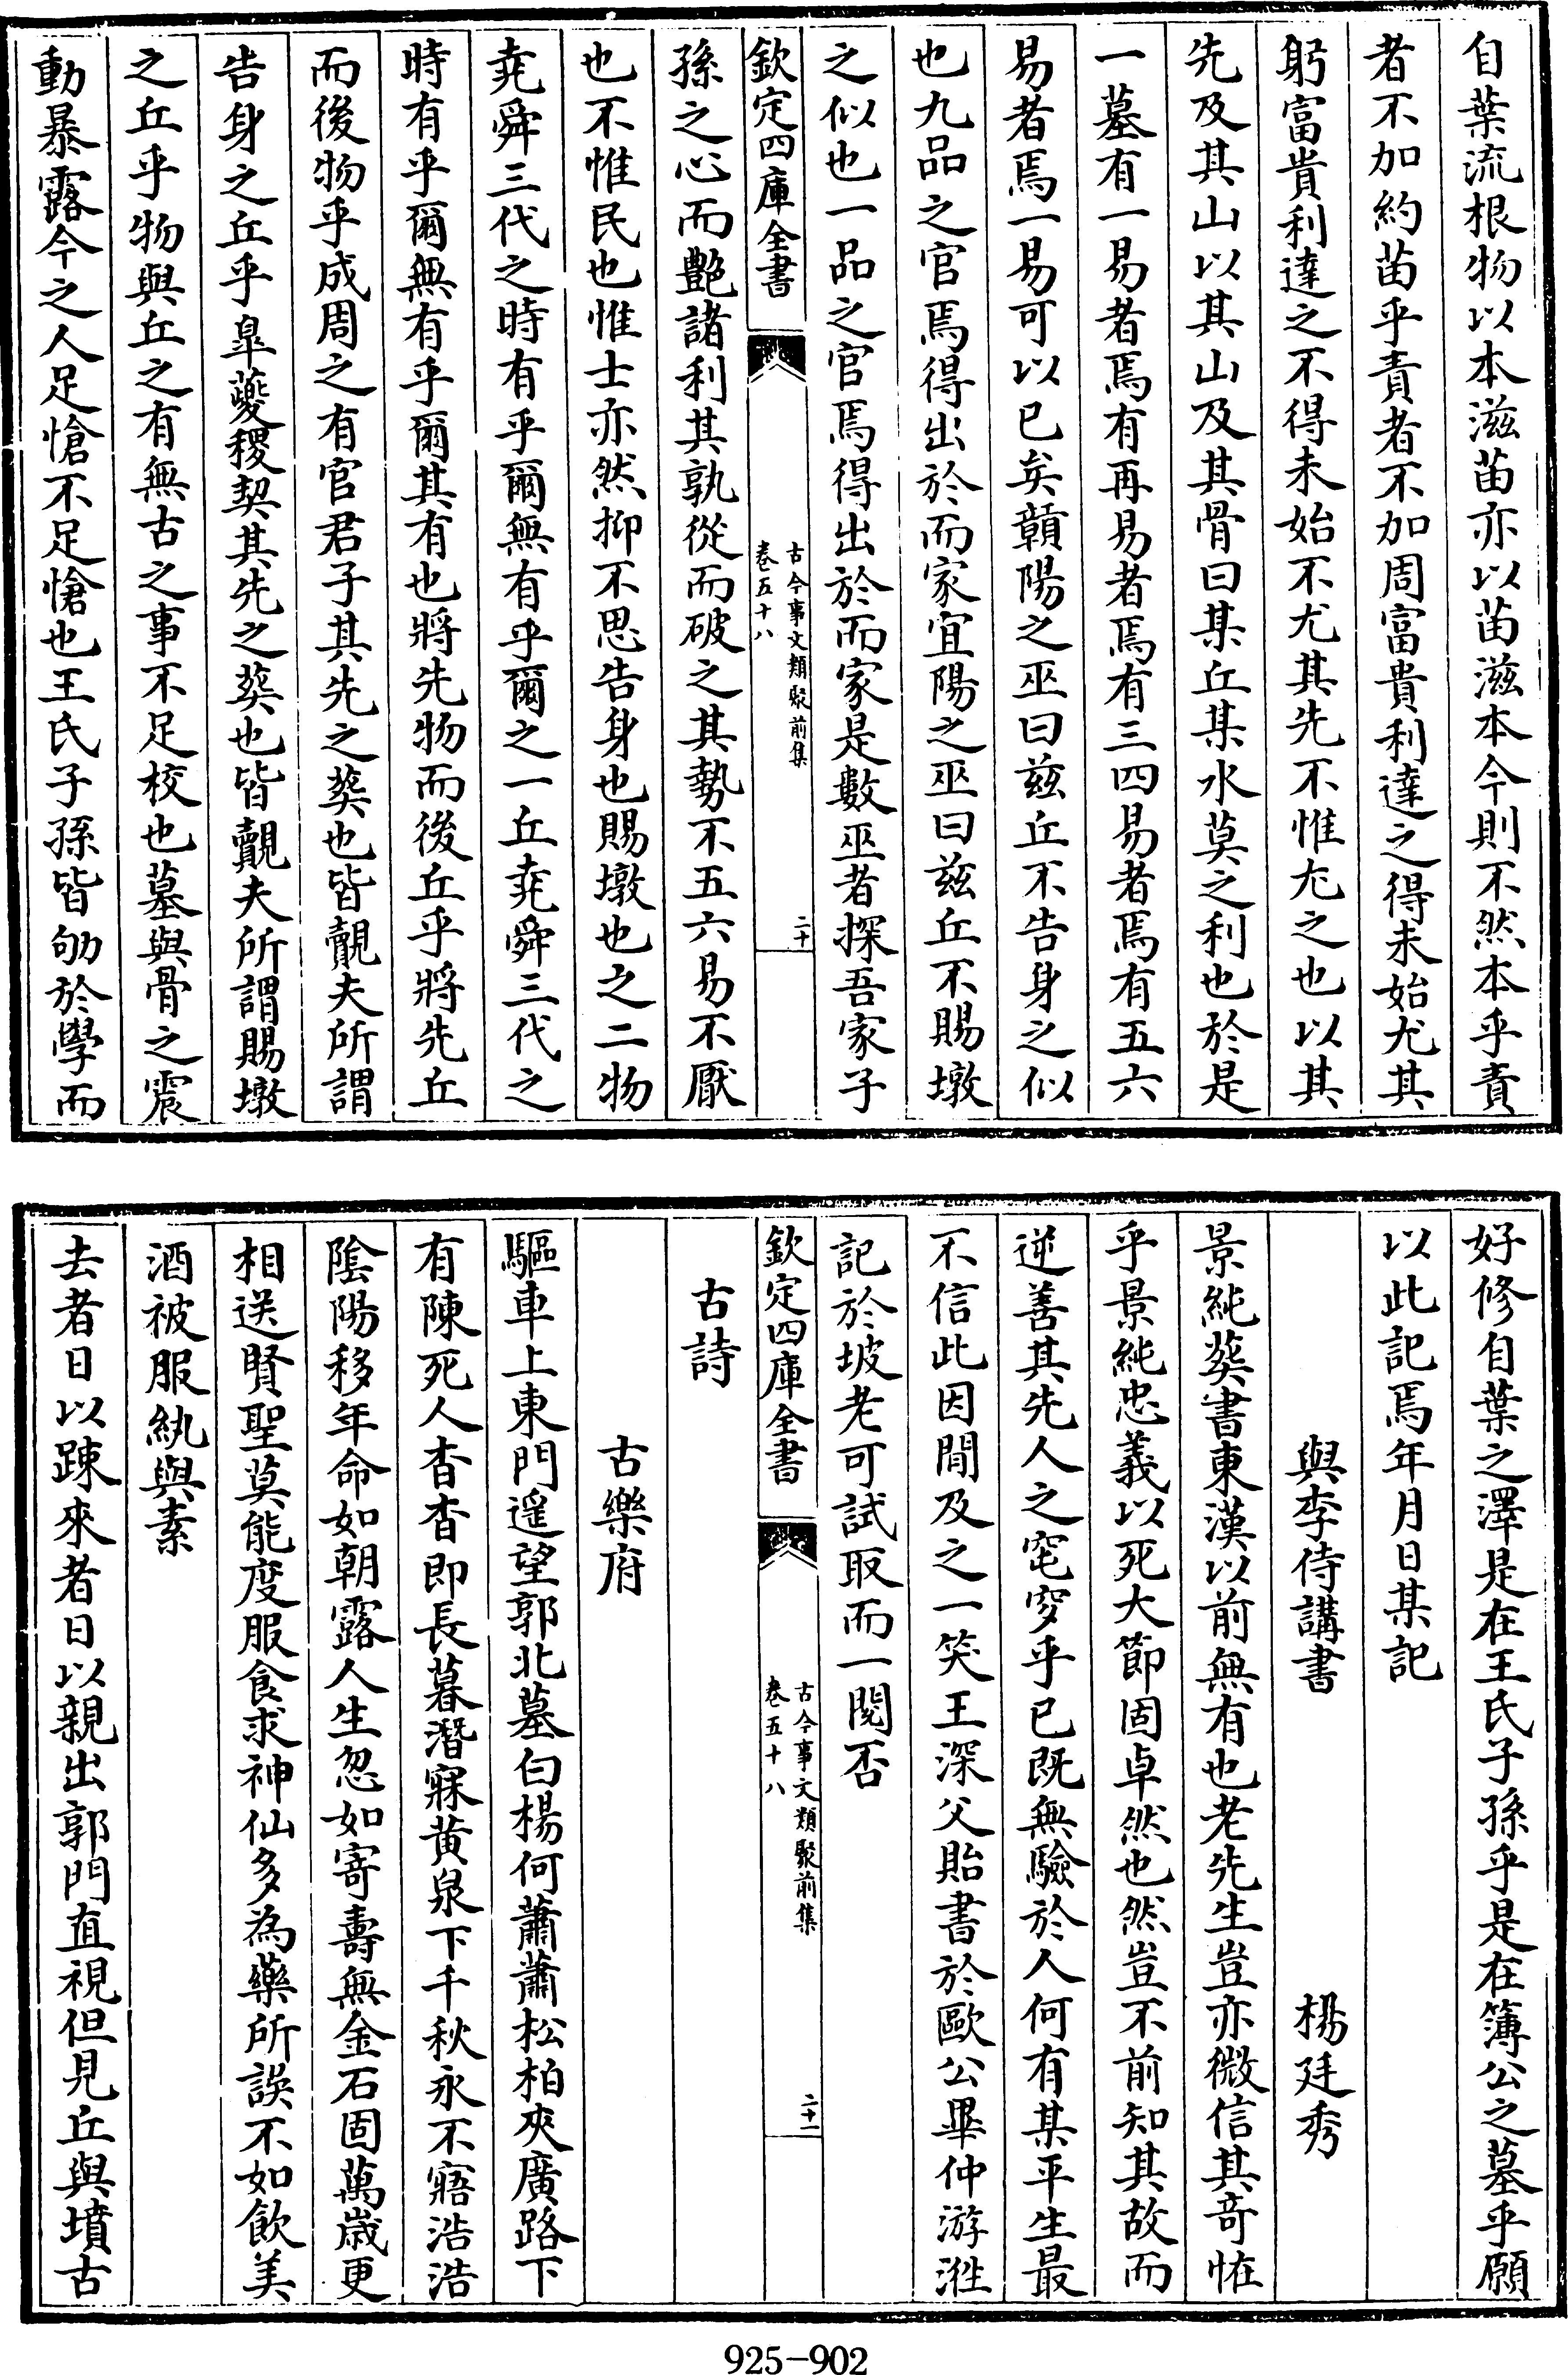 自葉流根物以本滋苗亦以苗滋本今則不然本乎責
者不加約苗乎責者不加周富貴利達之得未始尤其
躬富貴利達之不得未始不尤其先不惟尤之也以其
先及其山以其山及其骨曰某丘某水莫之利也於是
一墓有一易者焉有再易者焉有三四易者焉有五六
易者焉一易可以已矣贑陽之巫曰兹丘不告身之似
也九品之官焉得出於而家宜陽之巫曰兹丘不賜墩
之似也一品之官焉得出於而家是數巫者探吾家子
欽定四庫全書
古今事文類聚前集
卷五十八
二十
孫之心而艶諸利其孰從而破之其勢不五六易不厭
也不惟民也惟士亦然抑不思告身也賜墩也之二物
堯舜三代之時有乎爾無有乎爾之一丘堯舜三代之
時有乎爾無有乎爾其有也將先物而後丘乎將先丘
而後物乎成周之有官君子其先之葬也皆覿夫所謂
告身之丘乎臯夔稷契其先之葬也皆覿夫所謂賜墩
之丘乎物與丘之有無古之事不足校也墓與骨之震
動暴露今之人足愴不足愴也王氏子孫皆劬於學而
好修自葉之澤是在王氏子孫乎是在簿公之墓乎願
以此記焉年月日某記
與李侍講書 楊廷秀
景純葬書東漢以前無有也老先生豈亦微信其竒怪
乎景純忠義以死大節固卓然也然豈不前知其故而
逆善其先人之窀穸乎已既無驗於人何有某平生最
不信此因閒及之一笑王深父貽書於歐公畢仲游㴑
記於坡老可試取而一閲否
欽定四庫全書
古今事文類聚前集
卷五十八
二十一
古詩
古樂府
驅車上東門遥望郭北墓白楊何蕭蕭松柏夾廣路下
有陳死人杳杳即長暮潛寐黄泉下千秋永不寤浩浩
陰陽移年命如朝露人生忽如寄壽無金石固萬歲更
相送賢聖莫能度服食求神仙多為藥所誤不如飲美
酒被服紈與素
去者日以踈來者日以親出郭門直視但見丘與墳古
925-902